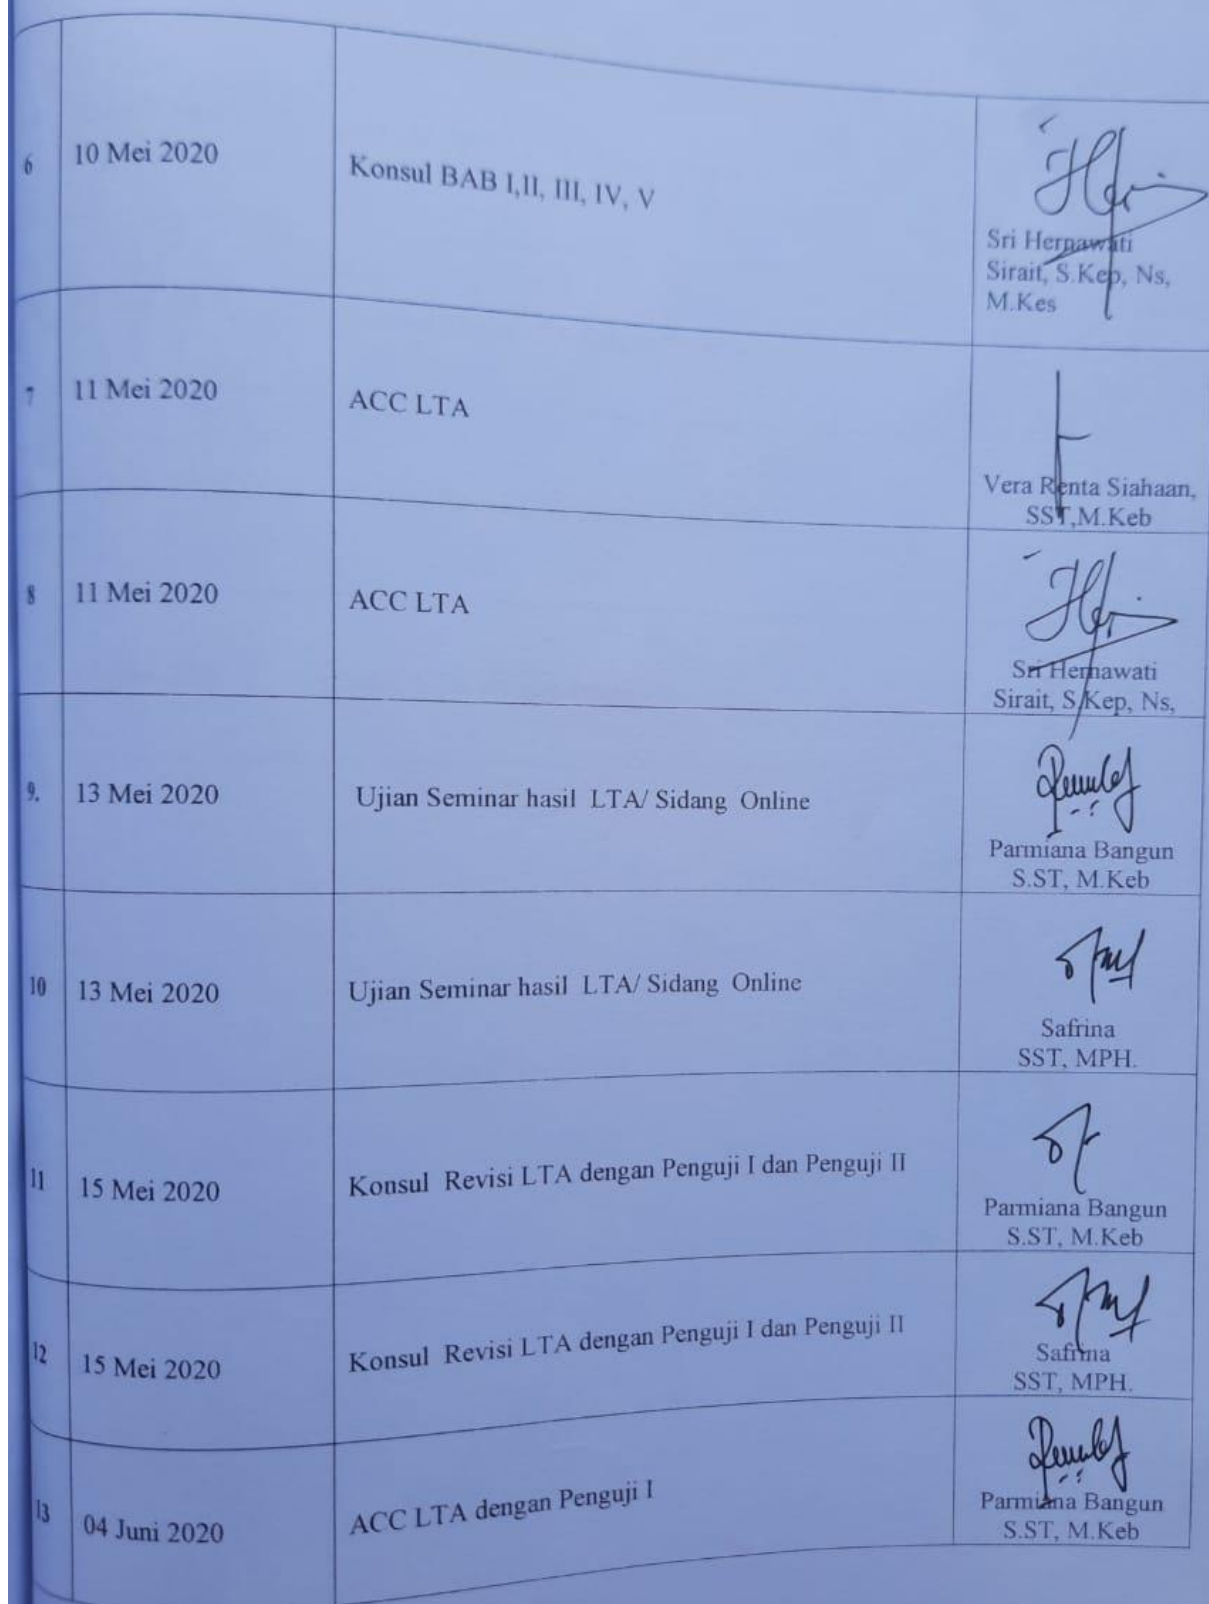 6
10 Mei 2020
Konsul BAB I,II, III, IV, V
Sri Hernawati
Sirait, S.Kep, Ns,
M.Kes
7
11 Mei 2020
ACC LTA
Vera Renta Siahaan,
SST,M.Keb
8
11 Mei 2020
ACC LTA
Sri Hernawati
Sirait, S.Kep, Ns,
9.
13 Mei 2020
Ujian Seminar hasil LTA/ Sidang Online
Parmiana Bangun
S.ST, M.Keb
10
13 Mei 2020
Ujian Seminar hasil LTA/ Sidang Online
Safrina
SST, MPH.
11
15 Mei 2020
Konsul Revisi LTA dengan Penguji I dan Penguji II
Parmiana Bangun
S.ST, M.Keb
12
15 Mei 2020
Konsul Revisi LTA dengan Penguji I dan Penguji II
Safrina
SST, MPH.
13
04 Juni 2020
ACC LTA dengan Penguji I
Parmiana Bangun
S.ST, M.Keb